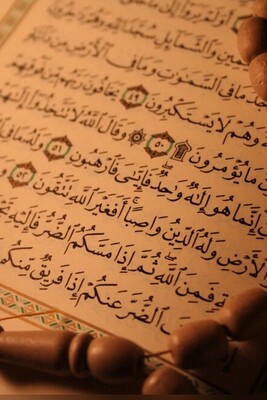 أَوَلَمْ يَرَوْا۟ إِلَىٰ
وَٱلشَّمَآئِلِ سُجَّدًا لِّلَّهِ وَهُمْ
مَا فِى ٱلسَّمَٰوَٰتِ وَمَا فِى ٱلْأَرْضِ مِن
وَهُمْ لَا يَسْتَكْبِرُونَ ٤٩ يَخَافُونَ رَبَّهُم مِّن فَوْقِهِمْ
مَا يُؤْمَرُونَ ۩ ٥٠ ۞ وَقَالَ ٱللَّهُ لَا تَتَّخِذُوٓا۟
إِنَّمَا هُوَ إِلَٰهٌ وَٰحِدٌ فَإِيَّٰىَ فَٱرْهَبُونِ ٥١ وَلَهُۥ مَا فِى
وَٱلْأَرْضِ وَلَهُ ٱلدِّينُ وَاصِبًا ۚ أَفَغَيْرَ ٱللَّهِ تَتَّقُونَ ٥٢
فَمِنَ ٱللَّهِ ۖ ثُمَّ إِذَا مَسَّكُمُ ٱلضُّرُّ فَإِلَيْهِ
ٱلضُّرَّ عَنكُمْ إِذَا فَرِيقٌ مِّنكُم